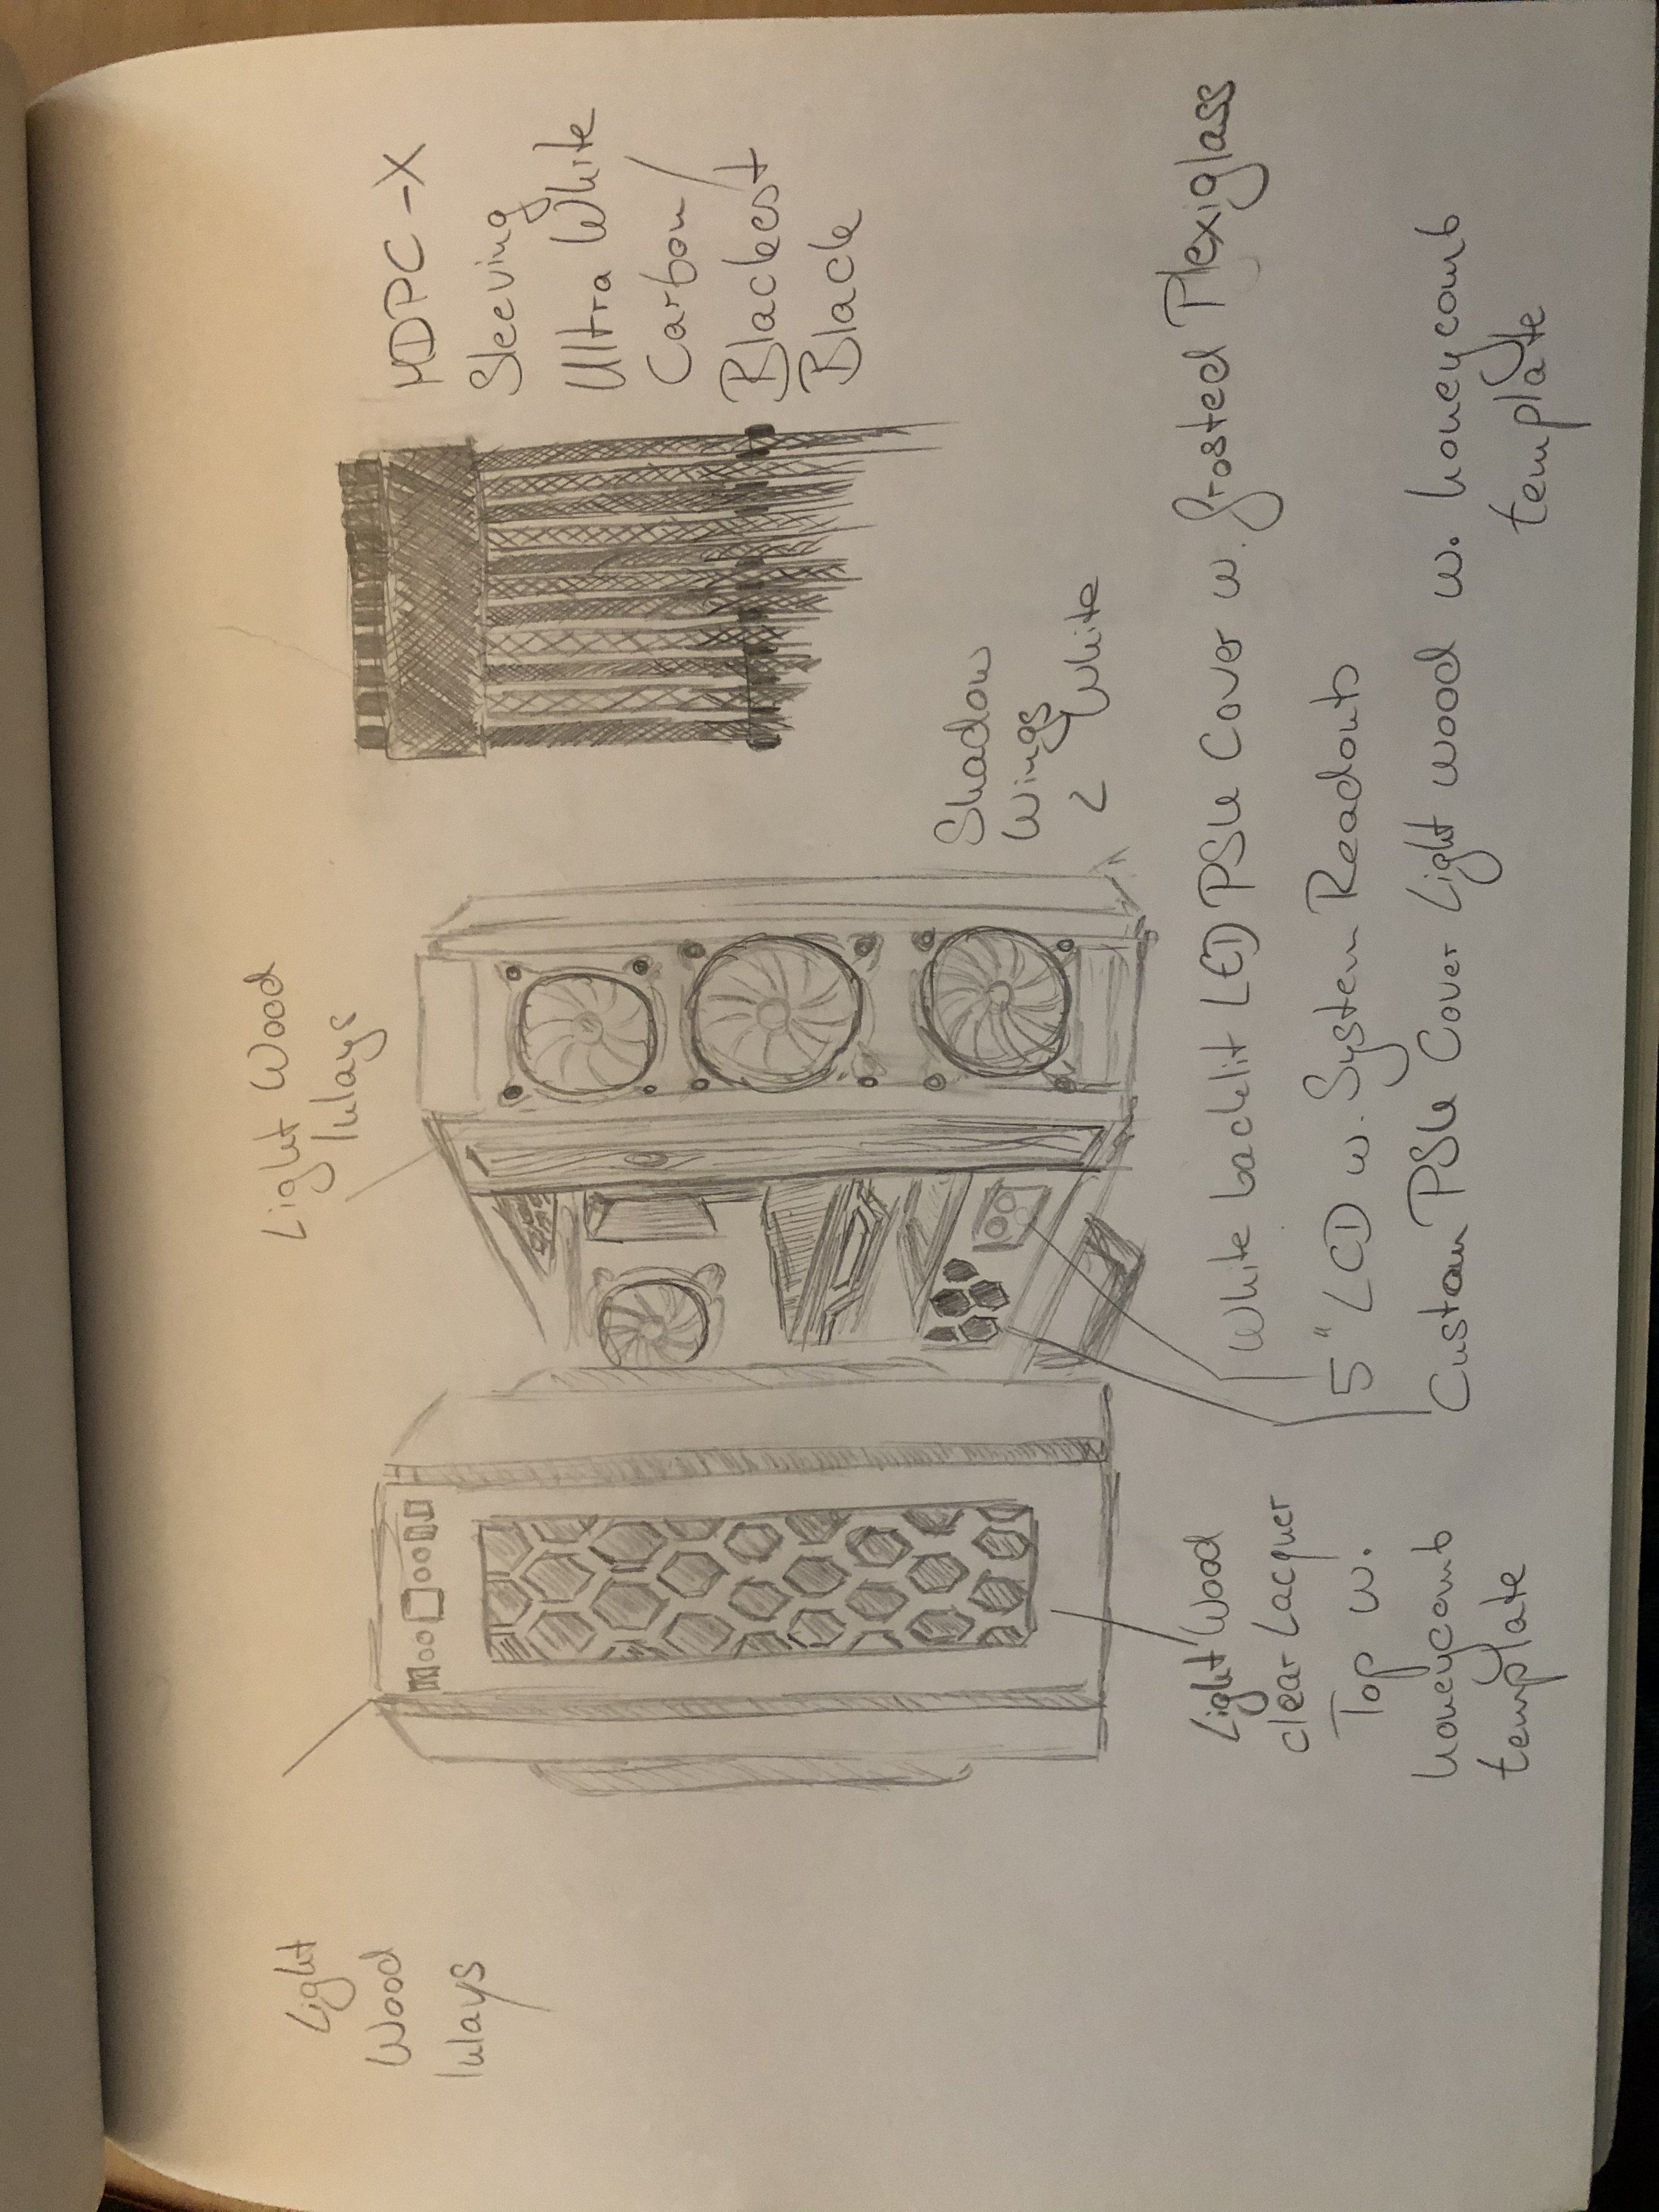 Light
Wood
Inlays
Light Wood
Inlays
MDPC-X
Sleeving
Ultra White
Carbon/
Blackest
Black
Shadow
Wings
2 White
Light Wood
clear Lacquer
Top w.
honeycomb
template
White backlit LED PSU Cover w. frosted Plexiglass
5" LCD w. System Readouts
Custom PSU Cover light wood w. honeycomb
template